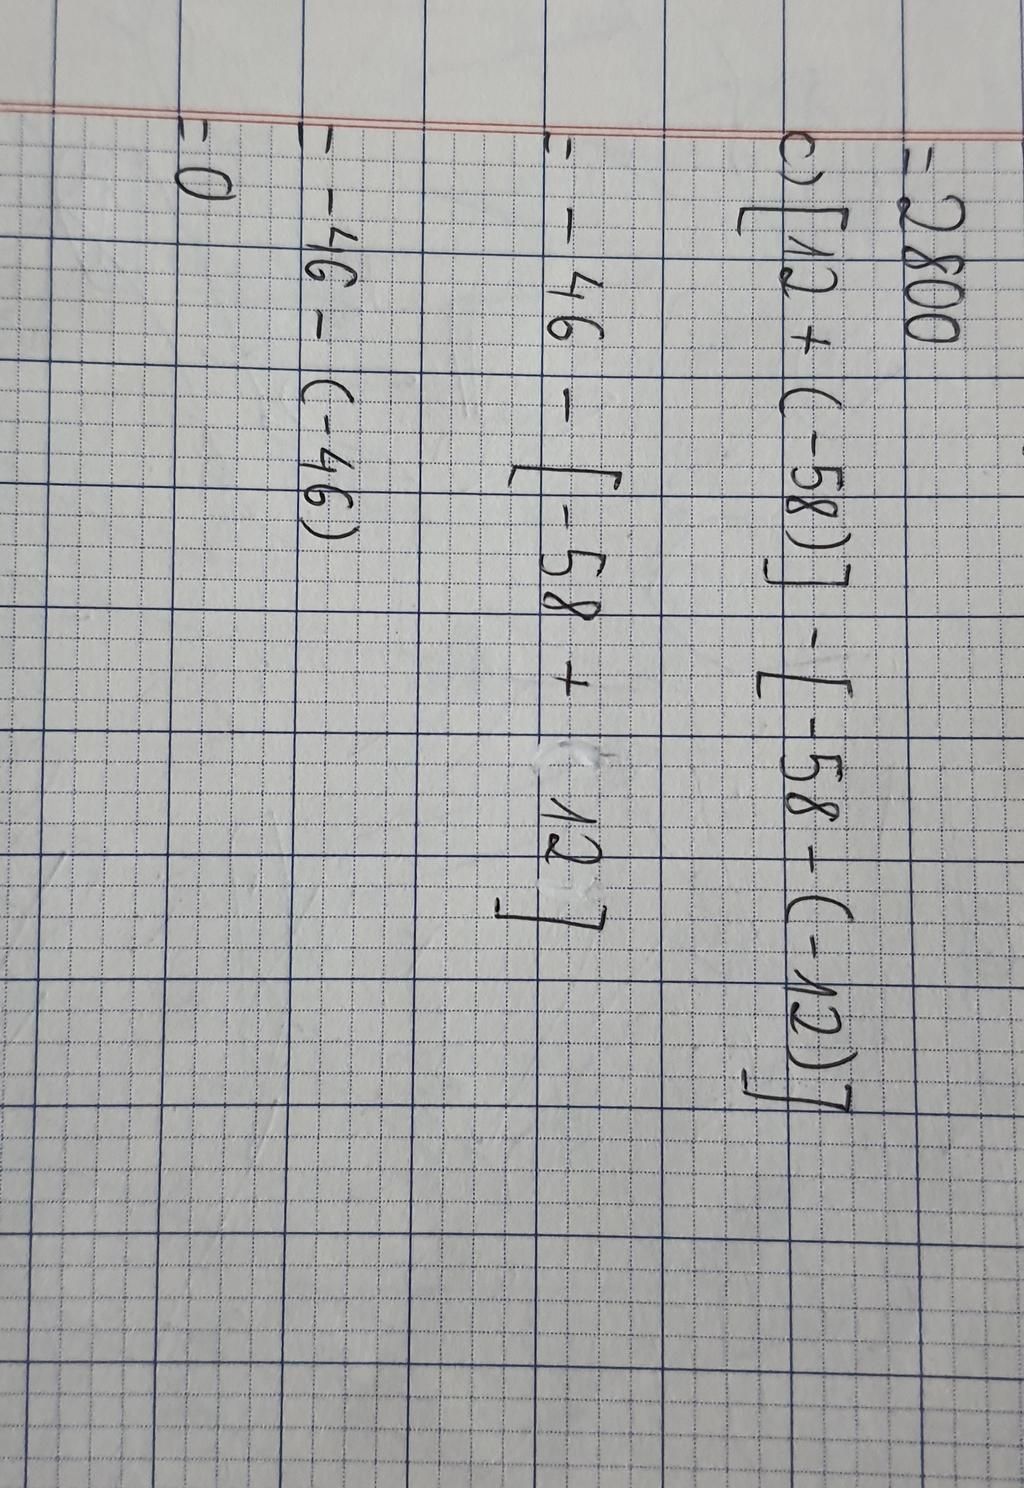 = 2800
c) [12 + (-58)] - [-58 - (-12)]
= - 46 - [-58 + 12]
= -46 - (-46)
= 0